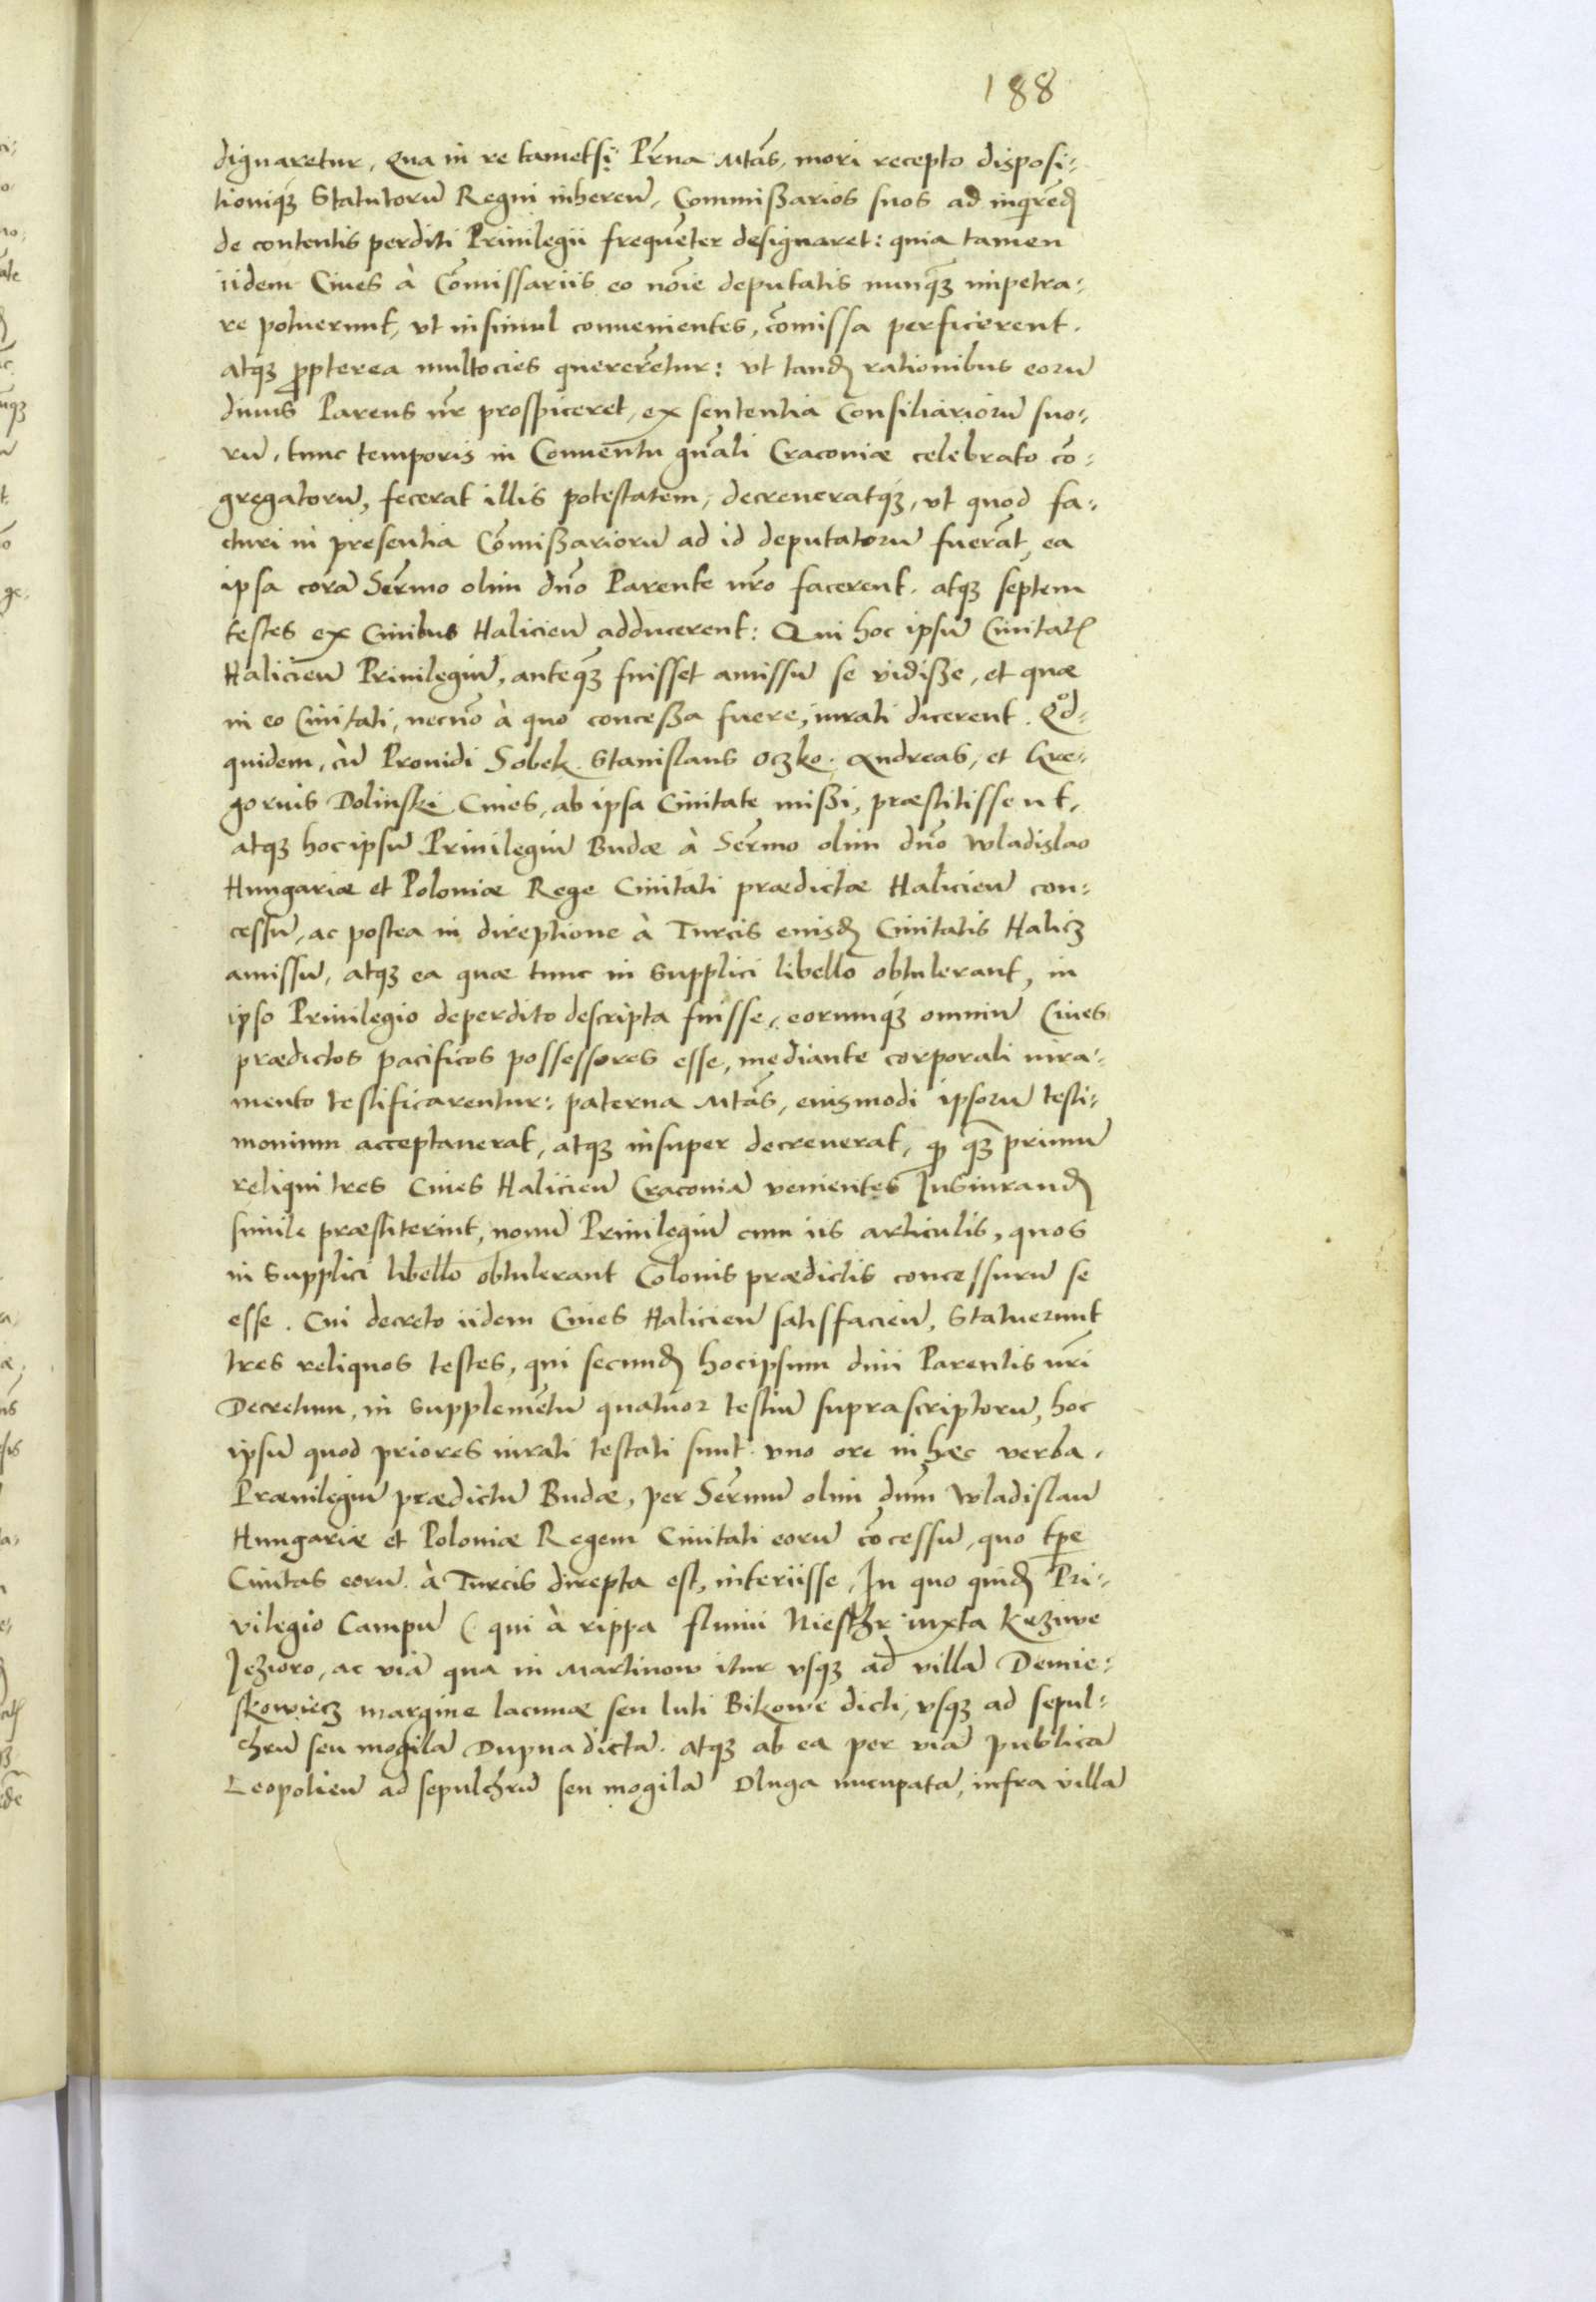 188
dignaretur, Qua in re tametsi Pr̃na Mtãs, mori recepto disposi:
tioniq́ʒ Statutorũ Regni inhereñ, Commißarios suos ad inqrend̃
de contentis perditi Priuilegii frequẽter designaret: quia tamen
iidem Ciues à Cõmissariis eo nõie deputatis nunq̃ʒ impetra:
re potuerunt, vt insimul conuenientes, cõmissa perficerent.
atqʒ p̃pterea multocies quererẽtur: vt tand̃ rationibus eorũ
diuus Parens nr̃ prospiceret, ex sententia Consiliariorũ suo:
rũ, tunc temporis in Conuentu gnãli Craconiæ celebrato cõ:
gregatorũ, fecerat illis potestatem, decreueratq́ʒ, vt quod fa:
cturi in presentia Cõmißariorũ ad id deputatorũ fuerãt, ea
ipsa corã Serm̃o olim dnõ Parente nr̃o facerent. atqʒ septem
testes ex Ciuibus Halicieñ adducerent: Qui hoc ipsũ Ciuitatꝭ
Halicieñ Priuilegiũ, anteq̃ʒ fuisset amissũ se vidiße, et quæ
in eo Ciuitati, necnõ à quo conceßa fuere, iurati dicerent. Qd̊:
quidem, cũ Prouidi Sobek. Stanislaus Oczko. Andreas, et Gre:
gorius Dolinski Ciues, ab ipsa Ciuitate mißi, præstitissent,
atqʒ hoc ipsũ Priuilegiũ Budæ à Serm̃o olim dnõ Wladislao
Hungariæ et Poloniæ Rege Ciuitati prædictæ Halicieñ con:
cessũ, ac postea in direptione à Turcis eiusd̃ Ciuitatis Halicz
amissũ, atqʒ ea quæ tunc in supplici libello obtulerant, in
ipso Priuilegio deperdito descripta fuisse, eorumq́ʒ omniũ Ciues
prædictos pacificos possessores esse, mediante corporali iura:
mento testificarentur: paterna Mtãs, eiusmodi ipsorũ testi:
monium acceptauerat, atqʒ insuper decreuerat, q̃ q̃ʒ primũ
reliqui tres Ciues Halicieñ Cracouiã venientes Jusiurand̃
simile præstiterint, nouũ Priuilegiũ cum iis articulis, quos
in supplici libello obtulerant Colonis prædictis concessurũ se
esse. Cui decreto iidem Ciues Halicieñ satisfacieñ, Statuerunt
tres reliquos testes, qui secund̃ hocipsum diui Parentis nr̃i
Decretum, in supplemẽtũ quatuor testiũ suprascriptorũ, hoc
ipsũ quod priores iurati testati sunt. vno ore in hæc verba.
Præuilegiũ prædictũ Budæ, per Serm̃ũ olim dnm̃ Wladislaũ
Hungariæ et Poloniæ Regem Ciuitati eorũ cõcessũ, quo tp̃e
Ciuitas eorũ à Turcis direpta est, interiisse, In quo quid̃ Pri:
vilegio Campũ (qui à rippa fluuii Niesthr iuxta Krziwe
Jezioro, ac viã qua in Martinow itur vsqʒ ad villã Demie:
skowicz margine lacunæ seu luti Bikowe dicti, vsqʒ ad sepul:
chrũ seu mogilã Dupna dictã. atqʒ ab ea per viã publicã
Leopolieñ ad sepulchrũ seu mogilã Dluga nucupatã, infra villã